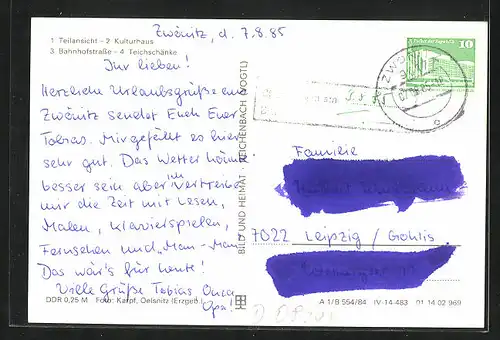 Zwönitz, d. 7.8.85
1 Teilansicht – 2 Kulturhaus
3 Bahnhofstraße – 4 Teichschänke
Ihr lieben!
Herzliche Urlaubsgrüße aus
Zwönitz sendet Euch Euer
Tobias. Mir gefällt es hier
sehr gut. Das Wetter könnte
besser sein, aber ich vertreibe
mir die Zeit mit Lesen,
Malen, Klavierspielen,
Fernsehen und
Das wär's für heute!
Viele Grüße Tobias
Opa!
DDR 0,25 M Foto: Karpf, Oelsnitz (Erzgeb.)
BILD UND HEIMAT · REICHENBACH (VOGTL)
10
Familie
7022 Leipzig / Gohlis
A 1/B 554/84 IV-14-483 01 14 02 969